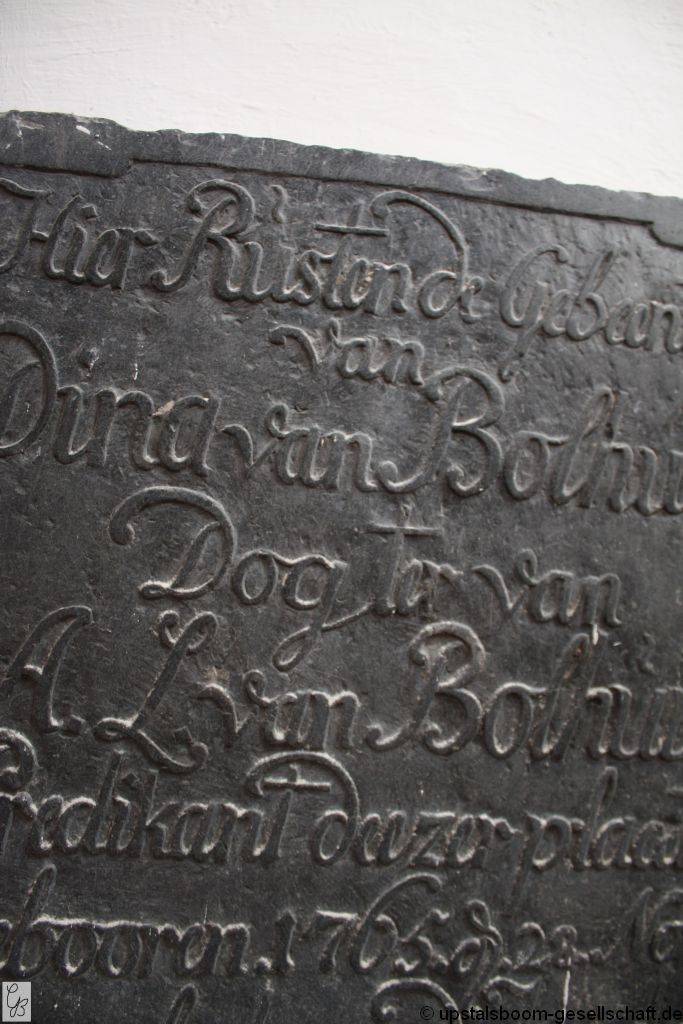 Hier Rusten de Gebeen
van
Dina van Bolhui
Dogter van
A. L. van Bolhui
Predikant dezer plaat
ebooren. 1765. d. 22. No
GB
© upstalsboom-gesellschaft.de